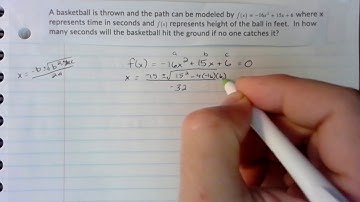 A basketball is thrown and the path can be modeled by f(x) = -16x² + 15x + 6 where x
represents time in seconds and f(x) represents height of the ball in feet. In how
many seconds will the basketball hit the ground if no one catches it?
a b c
f(x) = -16x² + 15x + 6 = 0
x = -b ± √b² - 4ac / 2a
x = -15 ± √15² - 4(-16)(6) / -32